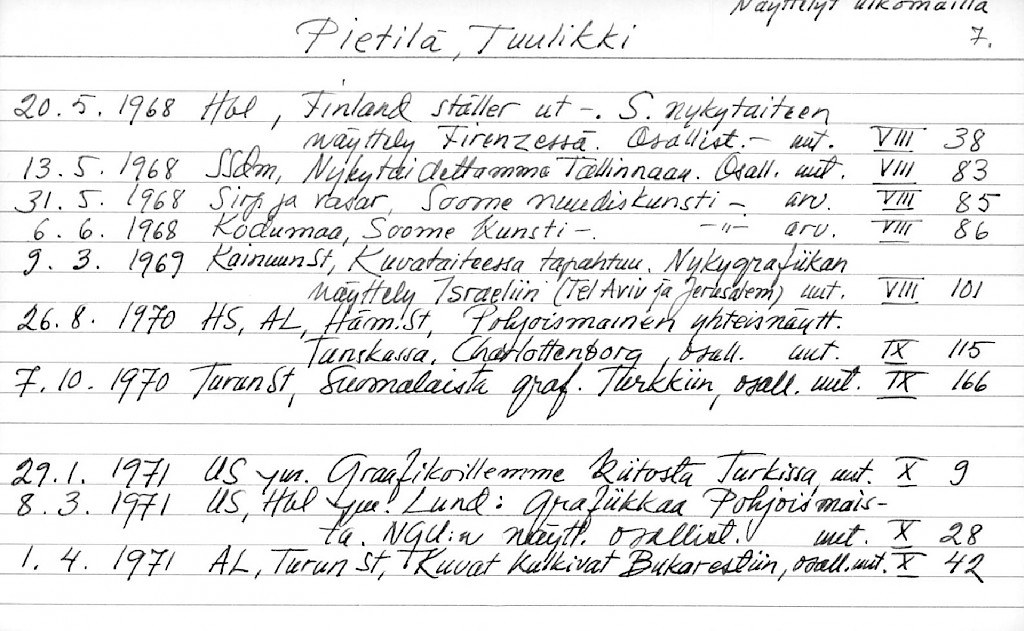 Näyttelyt ulkomailla
Pietilä, Tuulikki 7.
20.5.1968 Hbl, Finland ställer ut -. S. nykytaiteen
näyttely Firenzessä. Osallist.- uut. VIII 38
13.5.1968 SSdm, Nykytaidettamme Tallinnaan. Osall. uut. VIII 83
31.5.1968 Sirp ja vasar, Soome nuudiskunsti - arv. VIII 85
6.6.1968 Kodumaa, Soome Kunsti -. -"- arv. VIII 86
9.3.1969 KainuunSt, Kuvataiteessa tapahtuu. Nykygrafiikan
näyttely Israeliin (Tel Aviv ja Jerusalem) uut. VIII 101
26.8.1970 HS, AL, Häm.St, Pohjoismainen yhteisnäytt.
Tanskassa, Charlottenborg, osall. uut. IX 115
7.10.1970 TurunSt, Suomalaista graf. Turkkiin, osall. uut. IX 166
29.1.1971 US ym. Graafikoillemme kiitosta Turkissa, uut. X 9
8.3.1971 US, Hbl ym. Lund: Grafiikkaa Pohjoismais-
ta. NGU:n näytt. osallist. uut. X 28
1.4.1971 AL, TurunSt, Kuvat kulkivat Bukarestiin, osall. uut. X 42